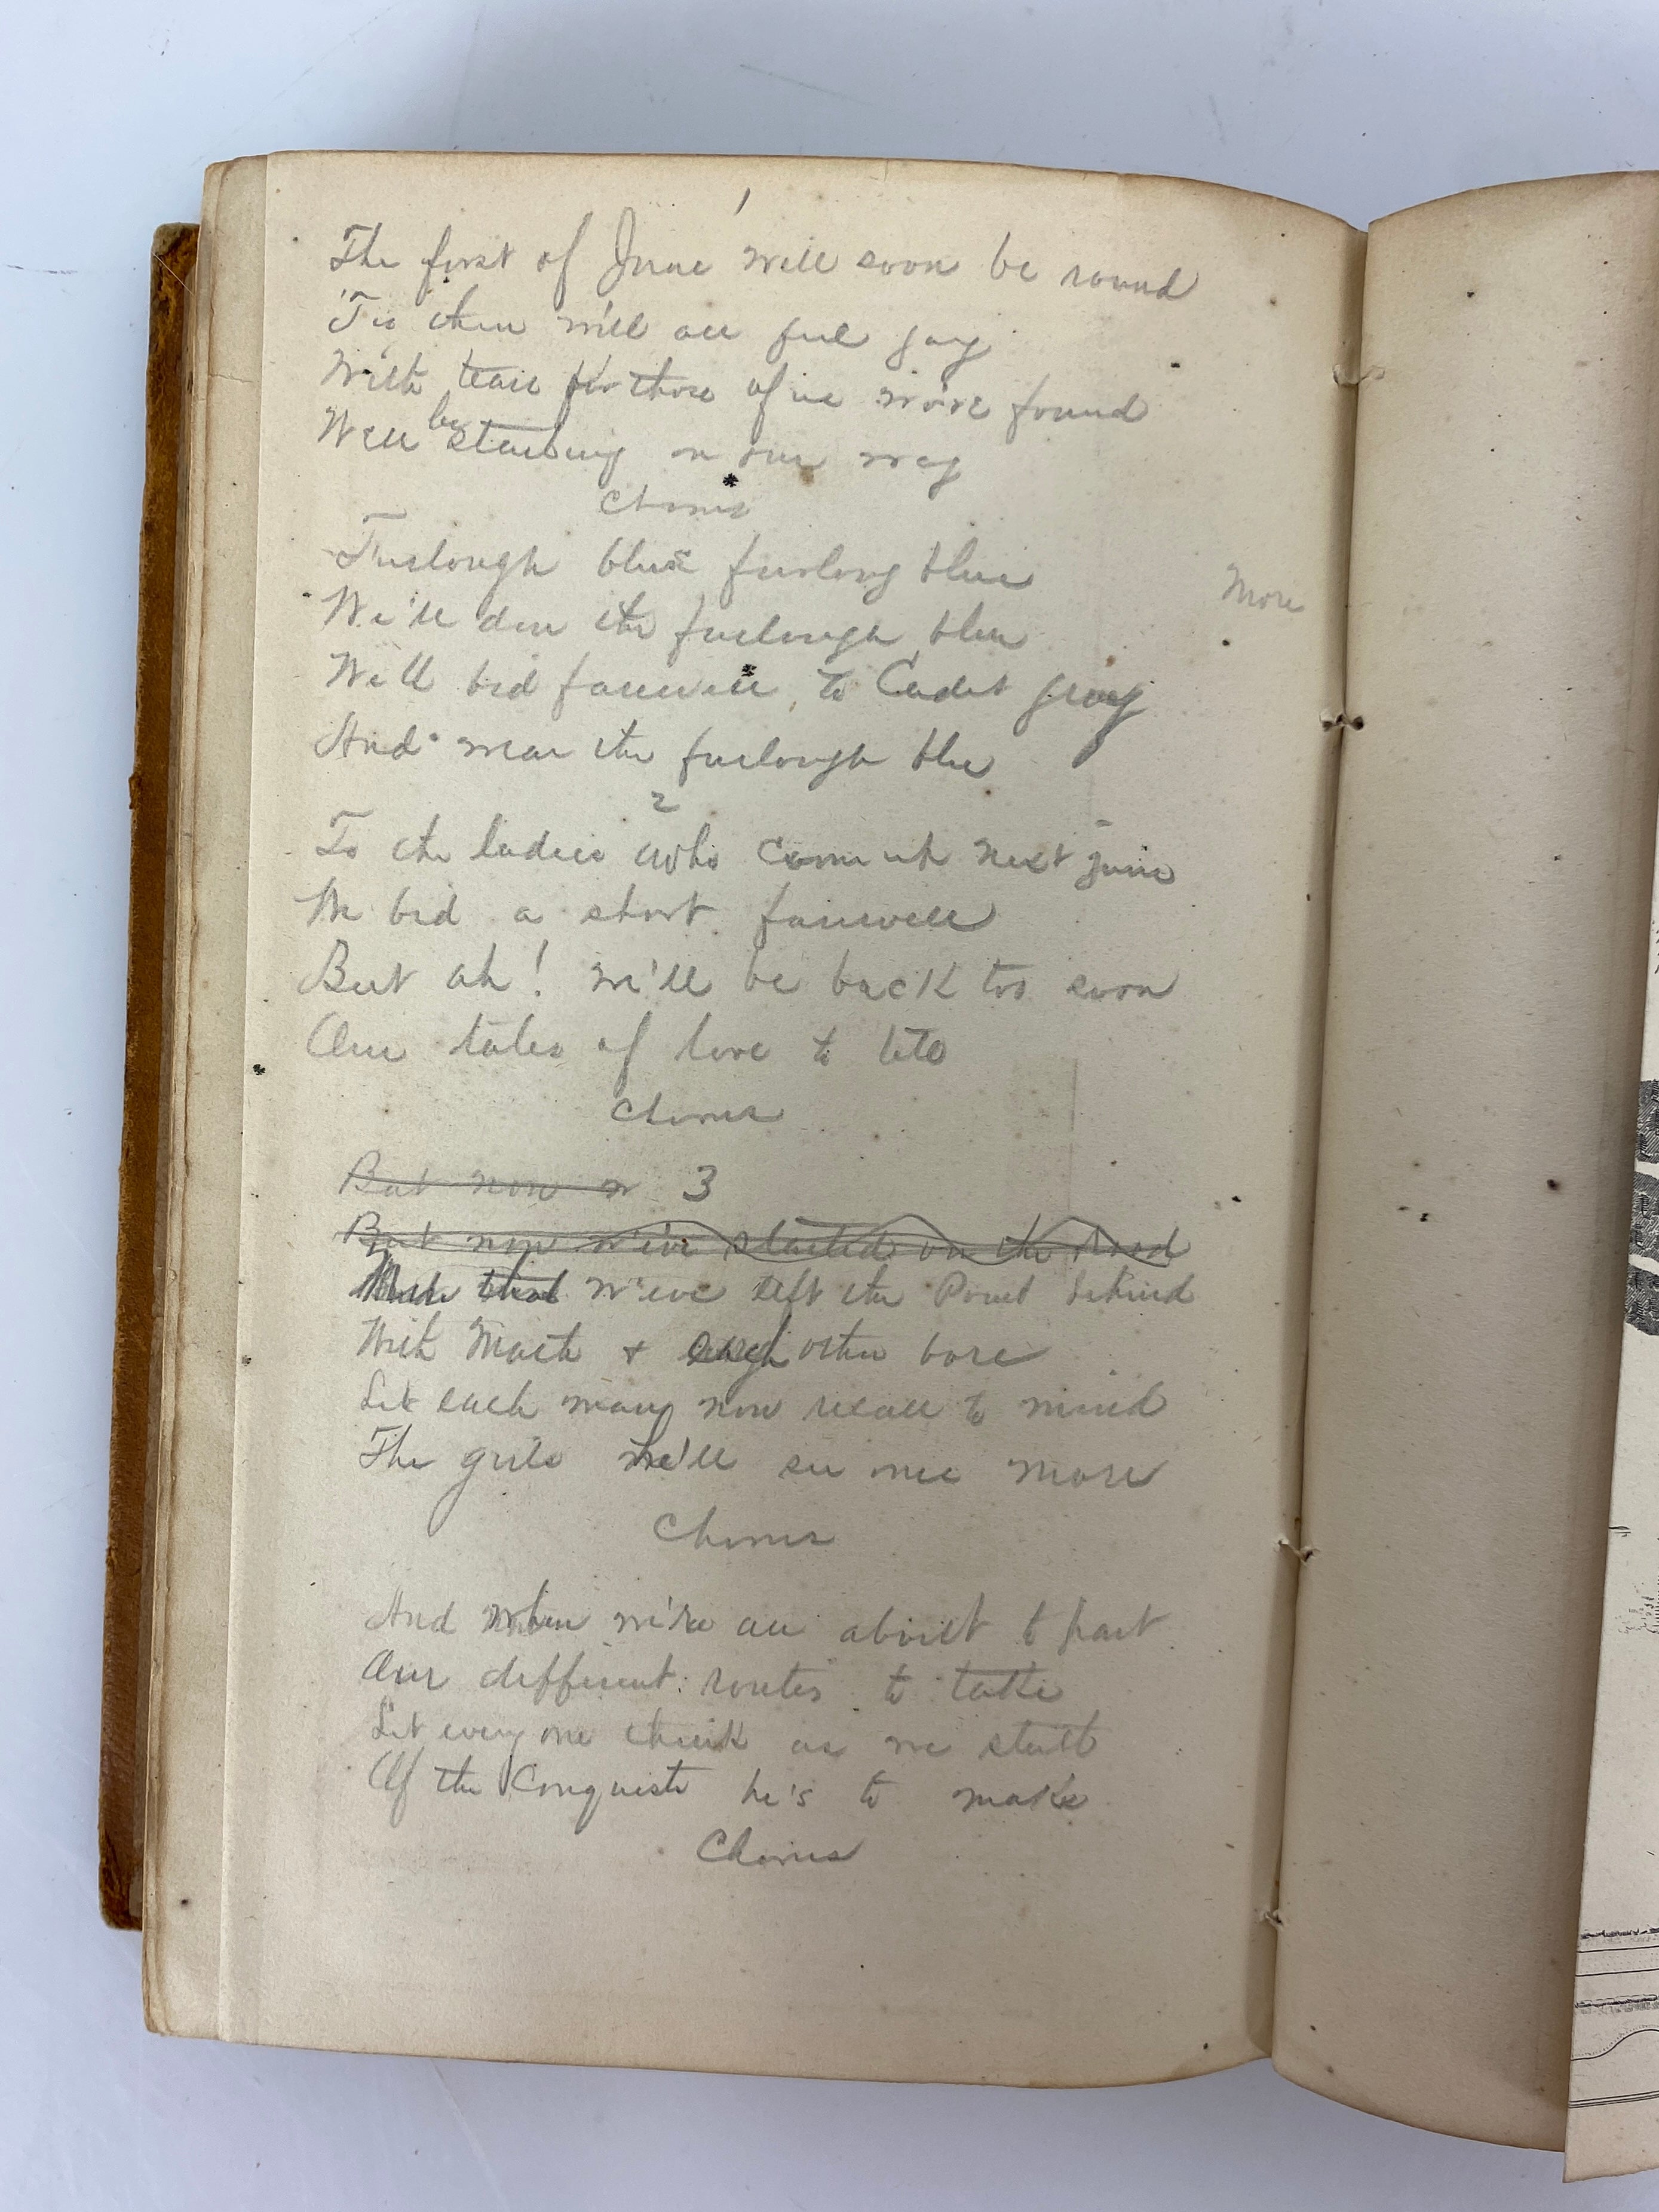 1
The first of June will soon be round
'Tis then we'll all feel gay
With tears for those of us we've found
We'll be starting on our way
Chorus
Furlough blue furloug blue
More
We'll don the furlough blue
We'll bid farewell to Cadet gray
And wear the furlough blue
2
To the ladies who come up next june
We bid a short farewell
But ah! we'll be back too soon
Our tales of love to tell
Chorus
But now w 3
But now we've started on the road
we've left the Point behind
With Math & each other bore
Let each man now recall to mind
The girls he'll see once more
Chorus
And when we're all about to part
Our different routes to take
Let every one think as we start
Of the Conquests he's to make
Chorus